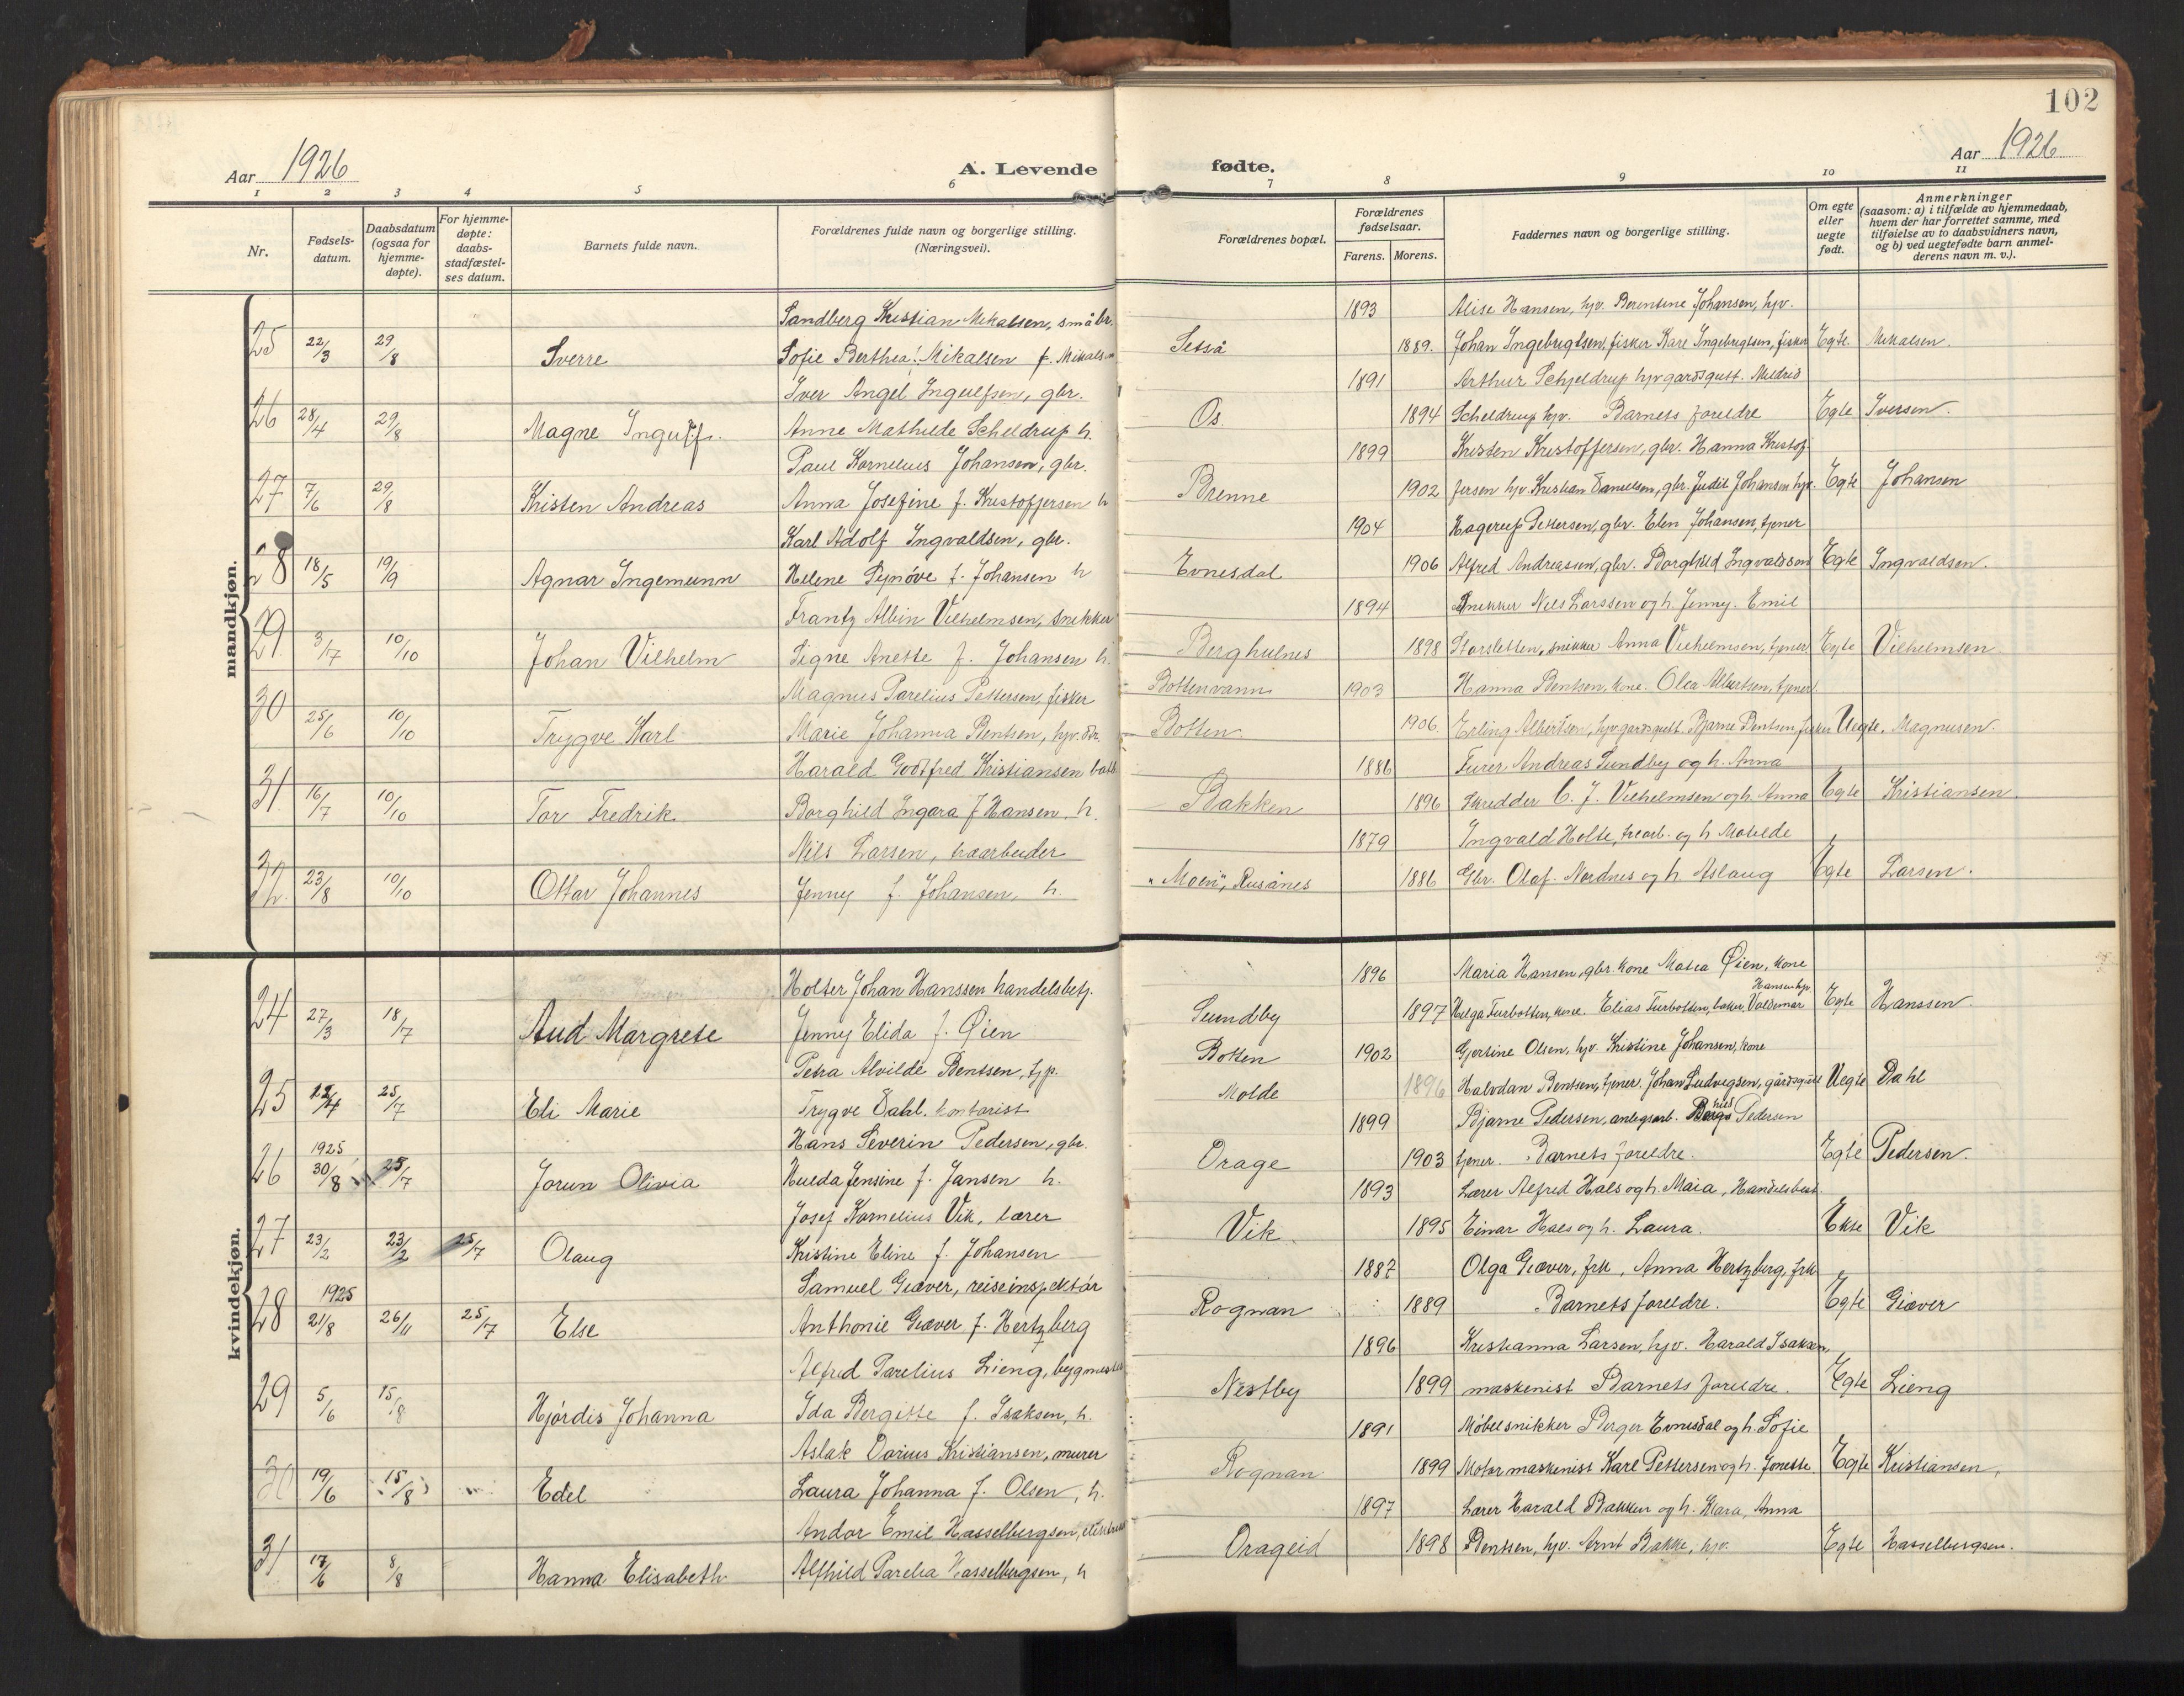 102
Aar 1926
A. Levende
fødte.
Aar 1926
1 2 3 4 5 6 7 8 9 10 11
Nr.
Fødsels-
datum.
Daabsdatum
(ogsaa for
hjemme-
døpte).
For hjemme-
døpte:
daabs-
stadfæstel-
ses datum.
Barnets fulde navn.
Forældrenes fulde navn og borgerlige stilling.
(Næringsvei).
Forældrenes bopæl.
Forældrenes
fødselsaar.
Farens. Morens.
Faddernes navn og borgerlige stilling.
Om egte
eller
uegte
født.
Anmerkninger
(saasom: a) i tilfælde av hjemmedaab,
hvem der har forrettet samme, med
tilføielse av to daabsvidners navn,
og b) ved uegtefødte barn anmel-
derens navn m. v.).
mandkjøn.
Sandberg Kristian Mikalsen, småbr. 1893 Alise Hansen, hjv. Berentine Johansen, hjv.
25 22/3 29/8 Sverre Sofie Berthea Mikalsen f. Mikalsen Setså 1889. Johan Ingebrigtsen, fisker Kare Ingebrigtsen, fisker Egte. Mikalsen.
Iver Angel Ingulfsen, gbr. 1891 Arthur Schjeldrup hjv gardsgutt. Mildrid
26 28/4 29/8 Magne Ingulf. Anne Mathilde Scheldrup h. Os. 1894 Scheldrup hjv. Barnets foreldre Egte Iversen.
Paul Kornelius Johansen, gbr. 1899 Kristen Kristoffersen, gbr. Hanna Kristof-
27 7/6 29/8 Kristen Andreas Anna Josefine f. Kristoffersen h Brenne 1902 fersen hjv. Kristian Danielsen, gbr. Judit Johansen hjv. Egte Johansen
Karl Adolf Ingvaldsen, gbr. 1904 Hagerup Pettersen, gbr. Elen Johansen, tjener
28 18/5 19/9 Agnar Ingemunn Helene Synøve f. Johansen h Evnesdal 1906 Alfred Andreassen, gbr. Borghild Ingvaldsen Egte Ingvaldsen.
Frantz Albin Vilhelmsen, snekker 1894 Snekker Nils Larssen og h. Jenny. Emil
29 3/7 10/10 Johan Vilhelm Signe Anette f. Johansen h. Berghulnes 1898 Storsletten, snikker Anna Vilhelmsen, tjener Egte Vilhelmsen
Magnus Parelius Pettersen, fisker Bottenvann 1903 Hanna Bentsen, kone. Olea Albertsen, tjener
30 25/6 10/10 Trygve Karl Marie Johanna Bentsen, hjv. dtr. Botten 1906 Erling Albertsen, hjv gardsgutt. Bjarne Bentsen fisker Uegte. Magnusen.
Harald Godtfred Kristiansen 1886 Furer Andreas Sundby og h. Anna
31 16/7 10/10 Tor Fredrik Borghild Ingara f Hansen, h. Bakken 1896 Skredder C. J. Vilhelmsen og h. Anna Egte Kristiansen.
Nils Larsen, trearbeider 1879 Ingvald Holte, trearb. og h Matilde
32. 23/8 10/10 Ottar Johannes Jenny f. Johansen, h. "Moen", Rusånes 1886 Gbr. Olaf Nordnes og h. Aslaug Egte Larsen.
kvindekjøn.
Holter Johan Hanssen handelsbetj. 1896 Maria Hansen, gbr. kone Matea Øien, kone
Hansen hjv
24 27/3 18/7 Aud Margrete Jenny Elida f. Øien Sundby 1897 Helga Furbotten, kone. Elias Furbotten, baker, Valdemar Egte Hanssen
Petra Alvilde Bentsen, tjp. Botten 1902 Gjertine Olsen, hjv. Kristine Johansen, kone
25 22/4 25/7 Eli Marie Trygve Dahl, kontorist Molde 1896 Halvdan Bentsen, tjener. Johan Ludvigsen, gårdsgutt Uegte Dahl
Hans Severin Pedersen, gbr. 1899 Bjarne Pedersen, anlegsarb. Pedersen
1925
26 30/8 25/7 Jorun Olivia Hulda Jensine f. Jansen h. Drage 1903 tjener. Barnets foreldre. Egte Pedersen.
Josef Kornelius Vik, lærer 1893 Lærer Alfred Hals og h. Maia, Handelsbest.
27 23/2 23/2 25/7 Olaug Kristine Eline f. Johansen Vik 1895 Einar Hals og h. Laura. Ekte Vik
Samuel Giæver, reiseinspektør 1887 Olga Giæver, frk, Anna Hertzberg, frk
1925
28 21/8 26/11 25/7 Else Anthonie Giæver f. Hertzberg Rognan 1889 Barnets foreldre. Egte Giæver
Alfred Parelius Lieng, bygmester 1896 Kristianna Larsen, hjv. Harald Isaksen,
29 5/6 15/8 Hjørdis Johanna Ida Bergitte f. Isaksen, h. Nestby 1899 maskinist Barnets foreldre. Egte Lieng
Aslak Darius Kristiansen, murer 1891 Møbelsnikker Berger Evnesdal og h. Sofie
30 19/6 15/8 Edel Laura Johanna f. Olsen, h. Rognan 1899 Motormaskinist Karl Pettersen og h. Jonette. Egte Kristiansen,
Andor Emil Hasselbergsen, 1897 Lærer Harald Bakken og h. Klara, Anna
31 17/6 8/8 Hanna Elisabeth Alfhild Parelia Hasselbergsen, h Drageid 1898 Bentsen, hjv. Arnt Bakke, hjv. Egte Hasselbergsen.